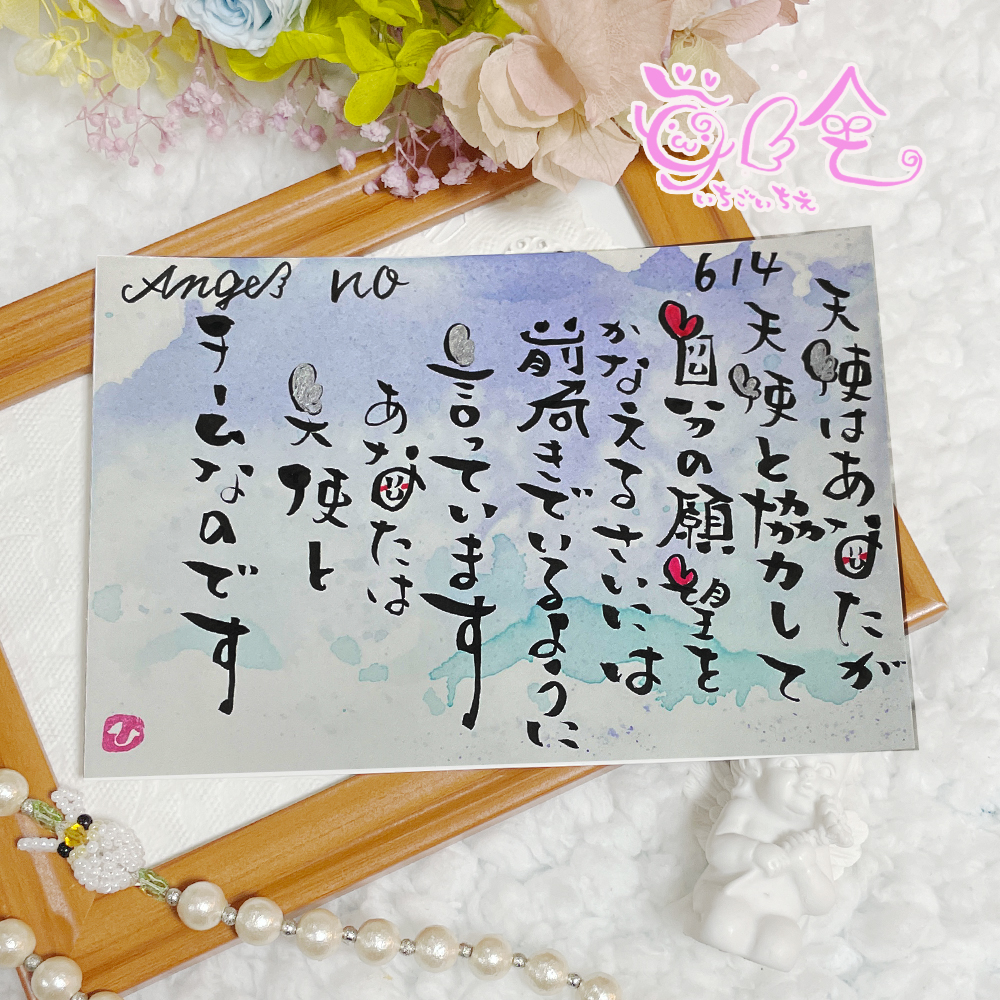 Angel no 614
天使はあなたが
天使と協力して
自分の願望を
かなえるさいには
前向きでいるように
言っています
あなたは
天使と
チームなのです
いちごいちえ